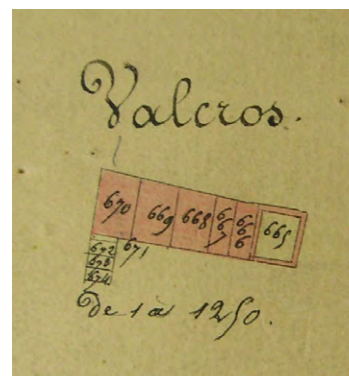 Valcros.
670 669 668 667 666 665
672 671
673
674
De 1 a 1250.